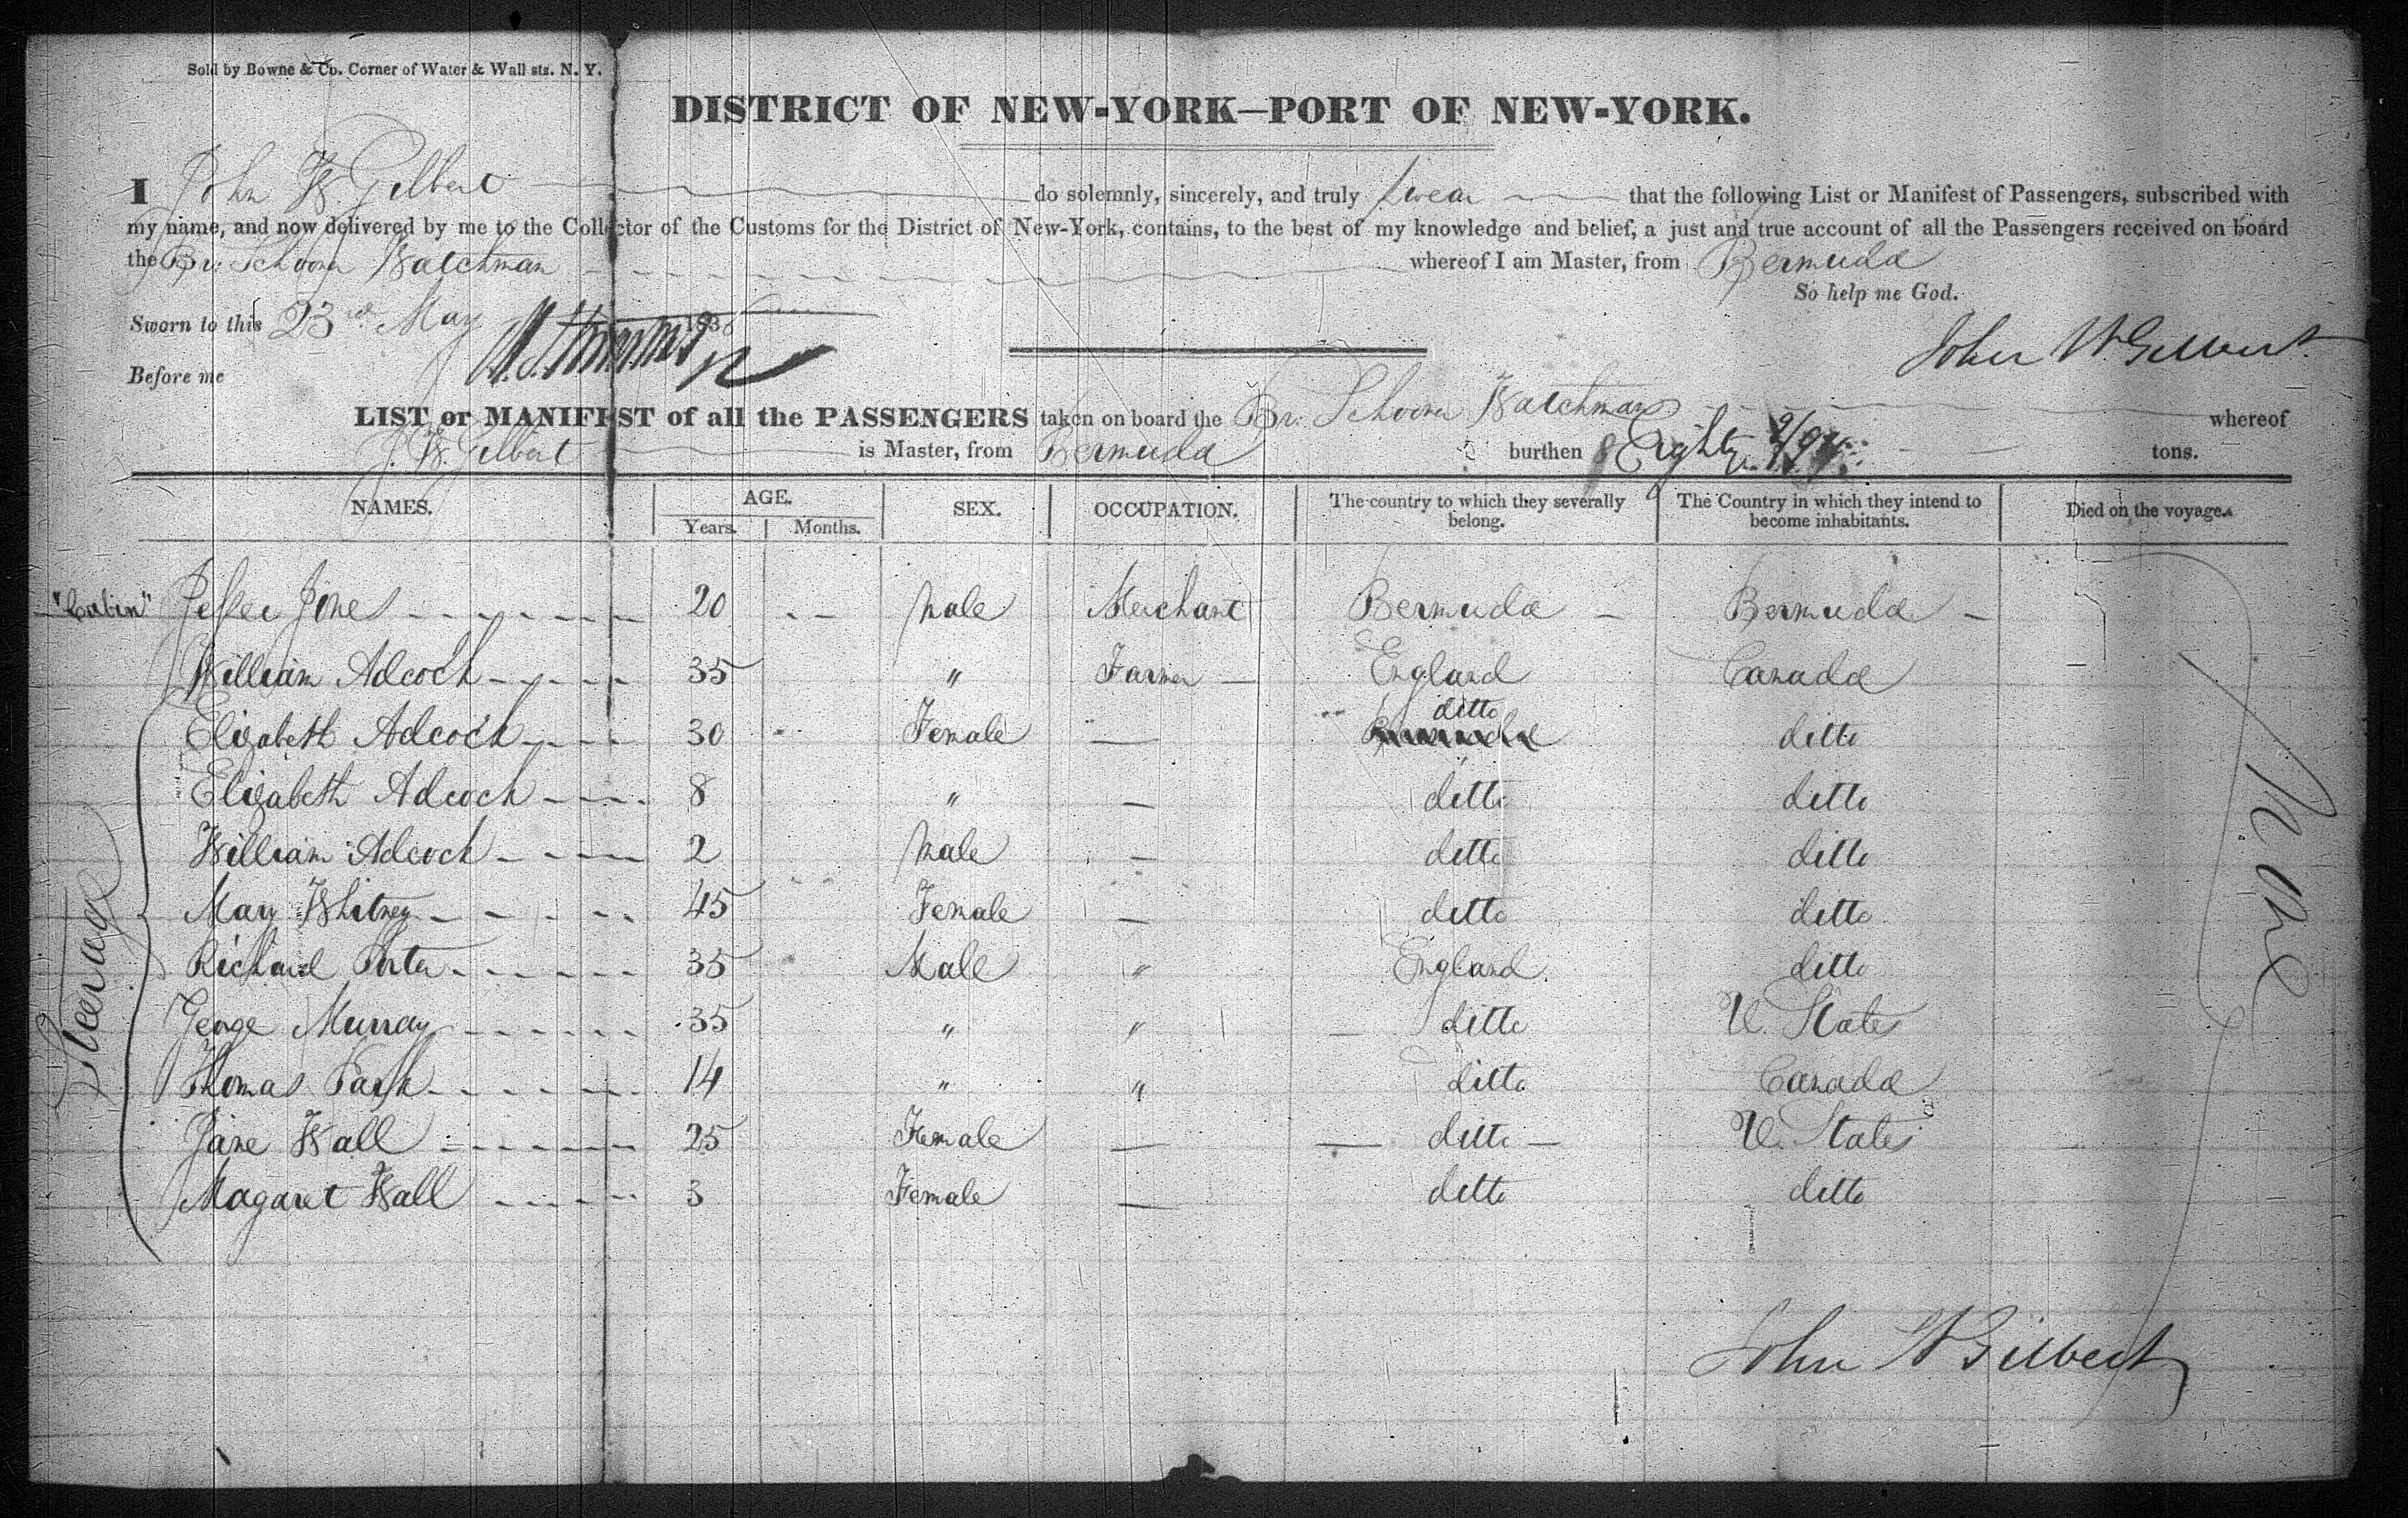 Sold by Bowne & Co. Corner of Water & Wall sts. N. Y.
DISTRICT OF NEW-YORK—PORT OF NEW-YORK.
I John W. Gilbert do solemnly, sincerely, and truly swear that the following List or Manifest of Passengers, subscribed with
my name, and now delivered by me to the Collector of the Customs for the District of New-York, contains, to the best of my knowledge and belief, a just and true account of all the Passengers received on board
the Br. Schoonr Watchman whereof I am Master, from Bermuda
So help me God.
Sworn to this 23rd May 1836
John W. Gilbert
Before me
LIST or MANIFEST of all the PASSENGERS taken on board the Br. Schoonr Watchman whereof
J. W. Gilbert is Master, from Bermuda burthen Eighty tons.
NAMES. AGE. SEX. OCCUPATION. The country to which they severally belong. The Country in which they intend to become inhabitants. Died on the voyage.
Years. Months.
"Cabin" Jesse Jones 20 Male Merchant Bermuda Bermuda
William Adcock 35 " Farmer England Canada
Elizabeth Adcock 30 Female — ditto ditto
Elizabeth Adcock 8 " — ditto ditto
William Adcock 2 Male — ditto ditto
Mary Whitney 45 Female — ditto ditto
Richard Porter 35 Male " England ditto
George Murray 35 " " ditto U. States
Thomas Park 14 " " ditto Canada
Jane Wall 25 Female — ditto U. States
Magaret Wall 3 Female — ditto ditto
Steerage
None
John W Gilbert